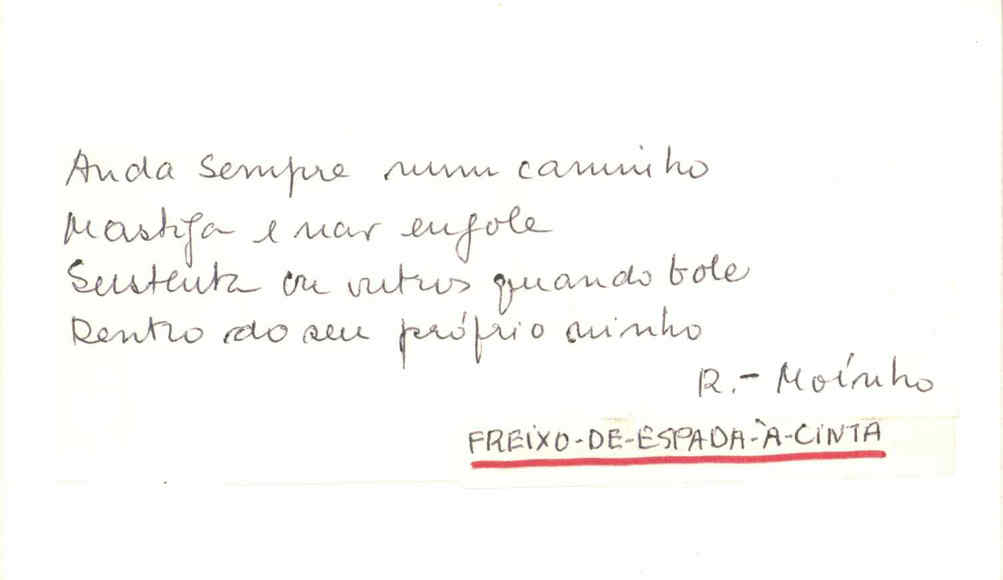 Anda sempre num caminho
Mastiga e não engole
Sustenta os outros quando bole
Dentro do seu próprio ninho
R.- Moínho
FREIXO-DE-ESPADA-À-CINTA